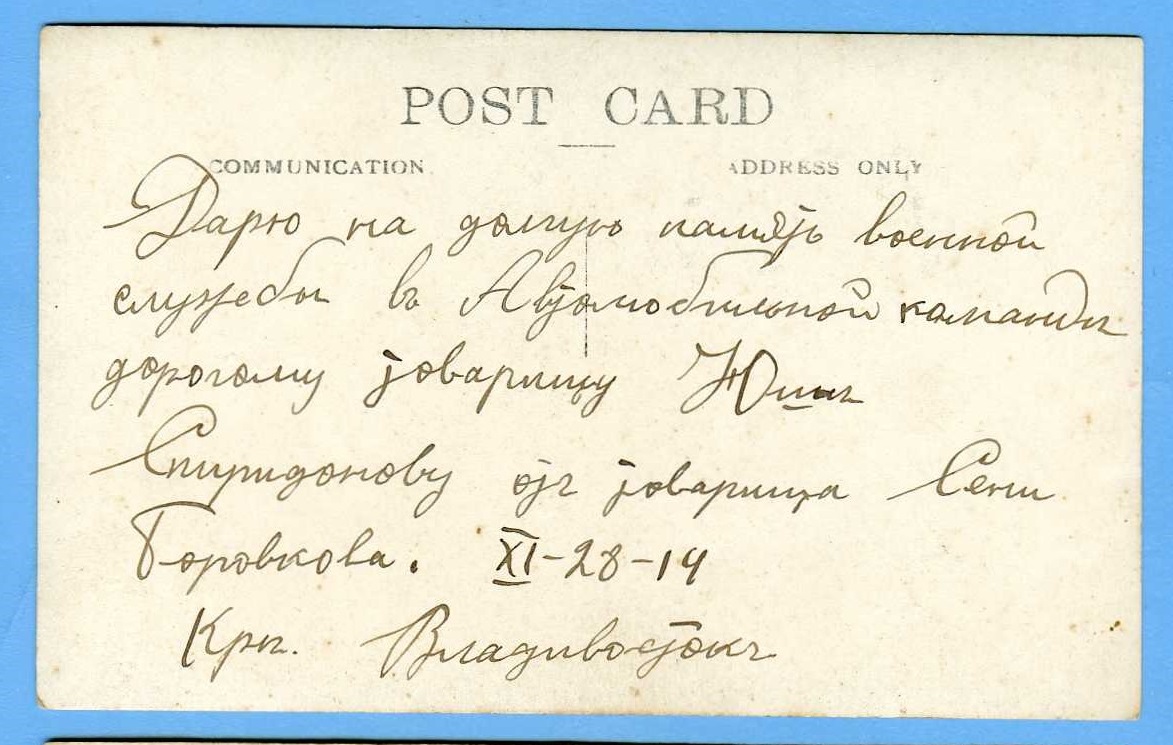 POST CARD
COMMUNICATION ADDRESS ONLY
Дарю на долгую память военной
службы въ Автомобильной командѣ
дорогому товарищу Юшѣ
Спиридонову отъ товарища Сени
Боровкова. XI-28-14
Крѣ. Владивостокъ